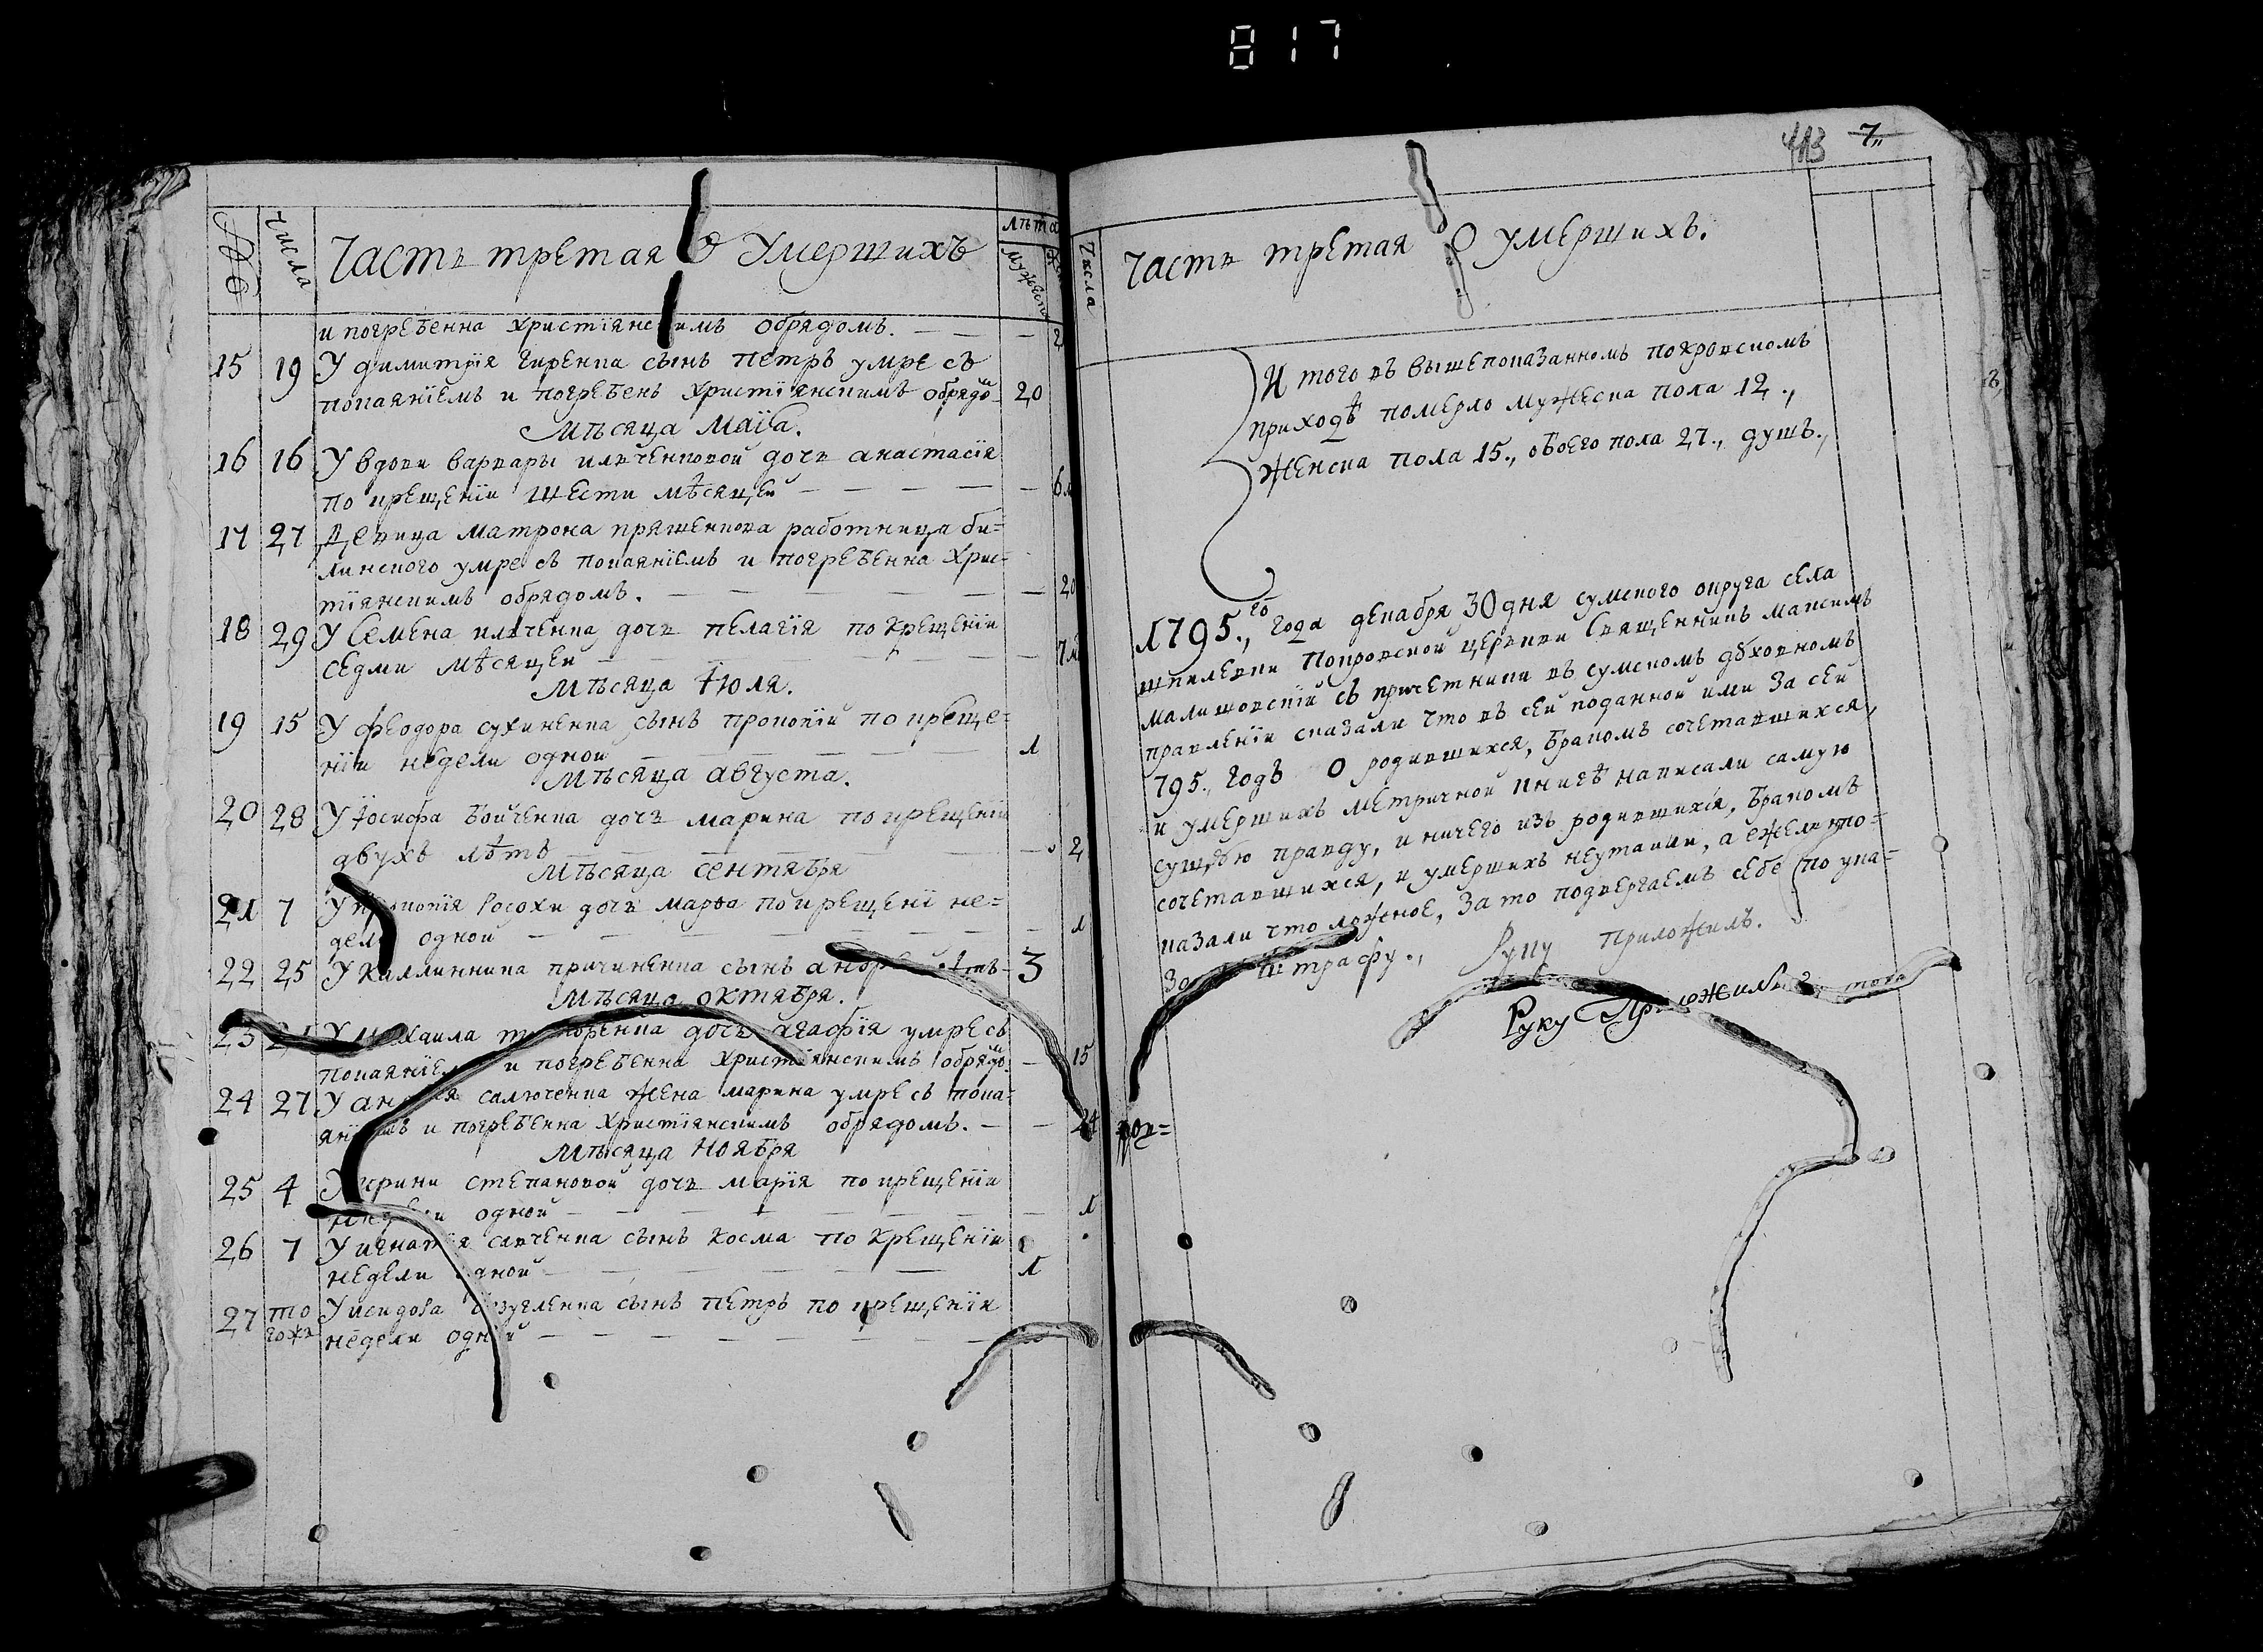 817
№
Числа
Часть третая О Умершихъ
лѣта
Мужеска
и погребенна христїянскимъ обрядомъ. — — — 2
15 19 У димитрїя Гиренка сынъ петръ умре съ
покаянїемъ и погребенъ христїянскимъ обрядо м 20
Мѣсяца Маїа.
16 16 У вдови варвары илченковой дочь анастасїя
по крещенїи шести мѣсяцей — — — — — 6
17 27 Девица матрона пряшенкова работница би=
линского умре съ покаянїемъ и погребенна Хрис=
тїянскимъ обрядомъ. — — — — — — — 20
18 29 У Семена илченка дочь пелагїя по крещенїи
седми мѣсяцей — — — — — — 7
Мѣсяца Iюля.
19 15 У феодора сухиненка сынъ прокопїй по креще=
нїи недели одной — — — — — 1
Мѣсяца августа.
20 28 У Iосифа бойченка дочь марина по крещенїи
двухъ лѣтъ — — — — — — 2
Мѣсяца сентября
21 7 У прокопїя Росохи дочь марѳа по крещенї не=
дели одной — — — — — — 1
22 25 У Каллинника причиненка сынъ андрей лѣтъ - 3
Мѣсяца октября.
23 У михаила дочь агафїя умре съ
покаянїем и погребенна христїянскимъ обрядо м — 15
24 27 У салюченка жена марина умре съ пока=
янїемъ и погребенна христїянскимъ обрядомъ. — —
Мѣсяца Ноября
25 4 У ирини степановой дочь марїя по крещенїи
недели одной — — — — — — 1
26 7 У игнатїя савченка сынъ косма по крещенїи
недели одной — — — — — 1
27 то гожъ У исидора сынъ петръ по крещенїи
недели одной — — — — — — —
413 7
Числа
Часть третая О умершихъ.
И того въ вышепоказанномъ покровскомъ
приходѣ померло мужеска пола 12.,
женска пола 15., обоего пола 27., душъ.,
1795., го года декабря 30 дня сумского округа села
шпилевки Покровской церкви Священникъ максимъ
малишовскїй съ причетники въ сумскомъ духовномъ
правленїи сказали что въ сей поданной ими за сей
795., годъ О родившихся, бракомъ сочетавшихся,
и умершихъ метричной книгѣ написали самую
сущую правду, и ничего изъ родившихся, бракомъ
сочетавшихся, и умершихъ неутаили, а ежели по=
казали что ложное, за то подвергаемъ себе по ука=
за штрафу., Руку приложилъ.
Руку Приложилъ